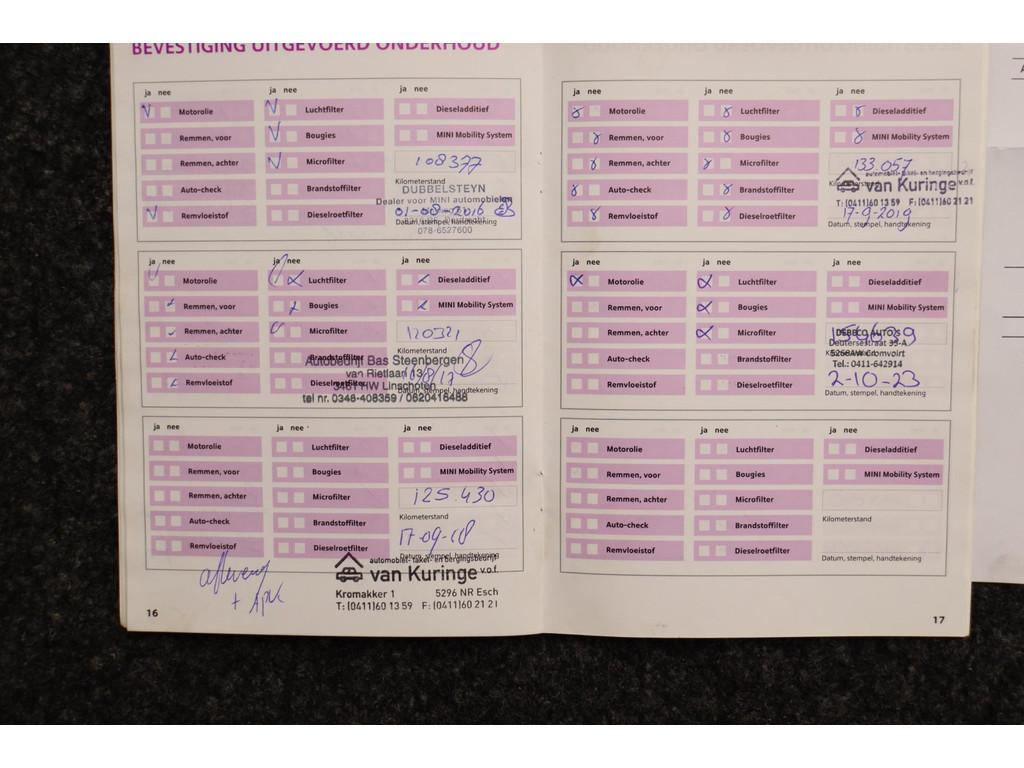 BEVESTIGING UITGEVOERD ONDERHOUD
ja nee ja nee ja nee
Motorolie Luchtfilter Dieseladditief
Remmen, voor Bougies MINI Mobility System
Remmen, achter Microfilter 108377
Kilometerstand
Auto-check Brandstoffilter DUBBELSTEYN
Dealer voor MINI automobielen
Remvloeistof Dieselroetfilter 01-08-2016
Datum, stempel, handtekening
078-6527600
ja nee ja nee ja nee
Motorolie Luchtfilter Dieseladditief
Remmen, voor Bougies MINI Mobility System
Remmen, achter Microfilter 120321
Kilometerstand
Auto-check Brandstoffilter
Autobedrijf Bas Steenbergen
van Rietlaan 13
Remvloeistof Dieselroetfilter
3461 HW Linschoten
Datum, stempel, handtekening
tel nr. 0348-408359 / 0620416488
ja nee ja nee ja nee
Motorolie Luchtfilter Dieseladditief
Remmen, voor Bougies MINI Mobility System
Remmen, achter Microfilter 125.430
Kilometerstand
Auto-check Brandstoffilter
17-09-18
Remvloeistof Dieselroetfilter
Datum, stempel, handtekening
automobiel- takel- en bergingsbedrijf
van Kuringe v.o.f.
Kromakker 1 5296 NR Esch
T: (0411)60 13 59 F: (0411)60 21 21
aflevering
+ APK
16
ja nee ja nee ja nee
Motorolie Luchtfilter Dieseladditief
Remmen, voor Bougies MINI Mobility System
Remmen, achter Microfilter 133.057
automobiel- takel- en bergingsbedrijf
Auto-check Brandstoffilter van Kuringe v.o.f.
T: (0411)60 13 59 F: (0411)60 21 21
Remvloeistof Dieselroetfilter 17-9-2019
Datum, stempel, handtekening
ja nee ja nee ja nee
Motorolie Luchtfilter Dieseladditief
Remmen, voor Bougies MINI Mobility System
Remmen, achter Microfilter
Deutersestraat 33-A
5268AW Cromvoirt
Auto-check Brandstoffilter
Tel.: 0411-642914
Remvloeistof Dieselroetfilter 2-10-23
Datum, stempel, handtekening
ja nee ja nee ja nee
Motorolie Luchtfilter Dieseladditief
Remmen, voor Bougies MINI Mobility System
Remmen, achter Microfilter
Kilometerstand
Auto-check Brandstoffilter
Remvloeistof Dieselroetfilter
Datum, stempel, handtekening
17